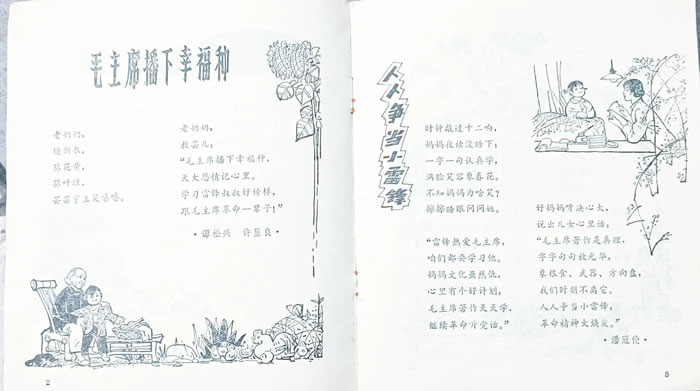 毛主席播下幸福种
老奶奶，
缝新衣，
葵花黄，
葵叶绿，
芸芸穿上笑嘻嘻。
老奶奶，
教芸儿：
“毛主席播下幸福种，
天大恩情记心里。
学习雷锋叔叔好榜样，
跟毛主席革命一辈子！”
·谭松兴 许显良·
2
人人争当小雷锋
时针敲过十二响，
妈妈夜读没睡下；
一字一句认真学，
满脸笑容象春花。
不知妈妈为啥笑？
擦擦睡眼问问她。
“雷锋热爱毛主席，
咱们都要学习他。
妈妈文化虽然低，
心里有个好计划，
毛主席著作天天学，
继续革命听党话。”
好妈妈呀决心大，
说出儿女心里话：
“毛主席著作是真理，
字字句句放光华，
象粮食、武器、方向盘，
我们时刻不离它。
人人争当小雷锋，
革命精神大焕发。”
·潘冠伦·
3